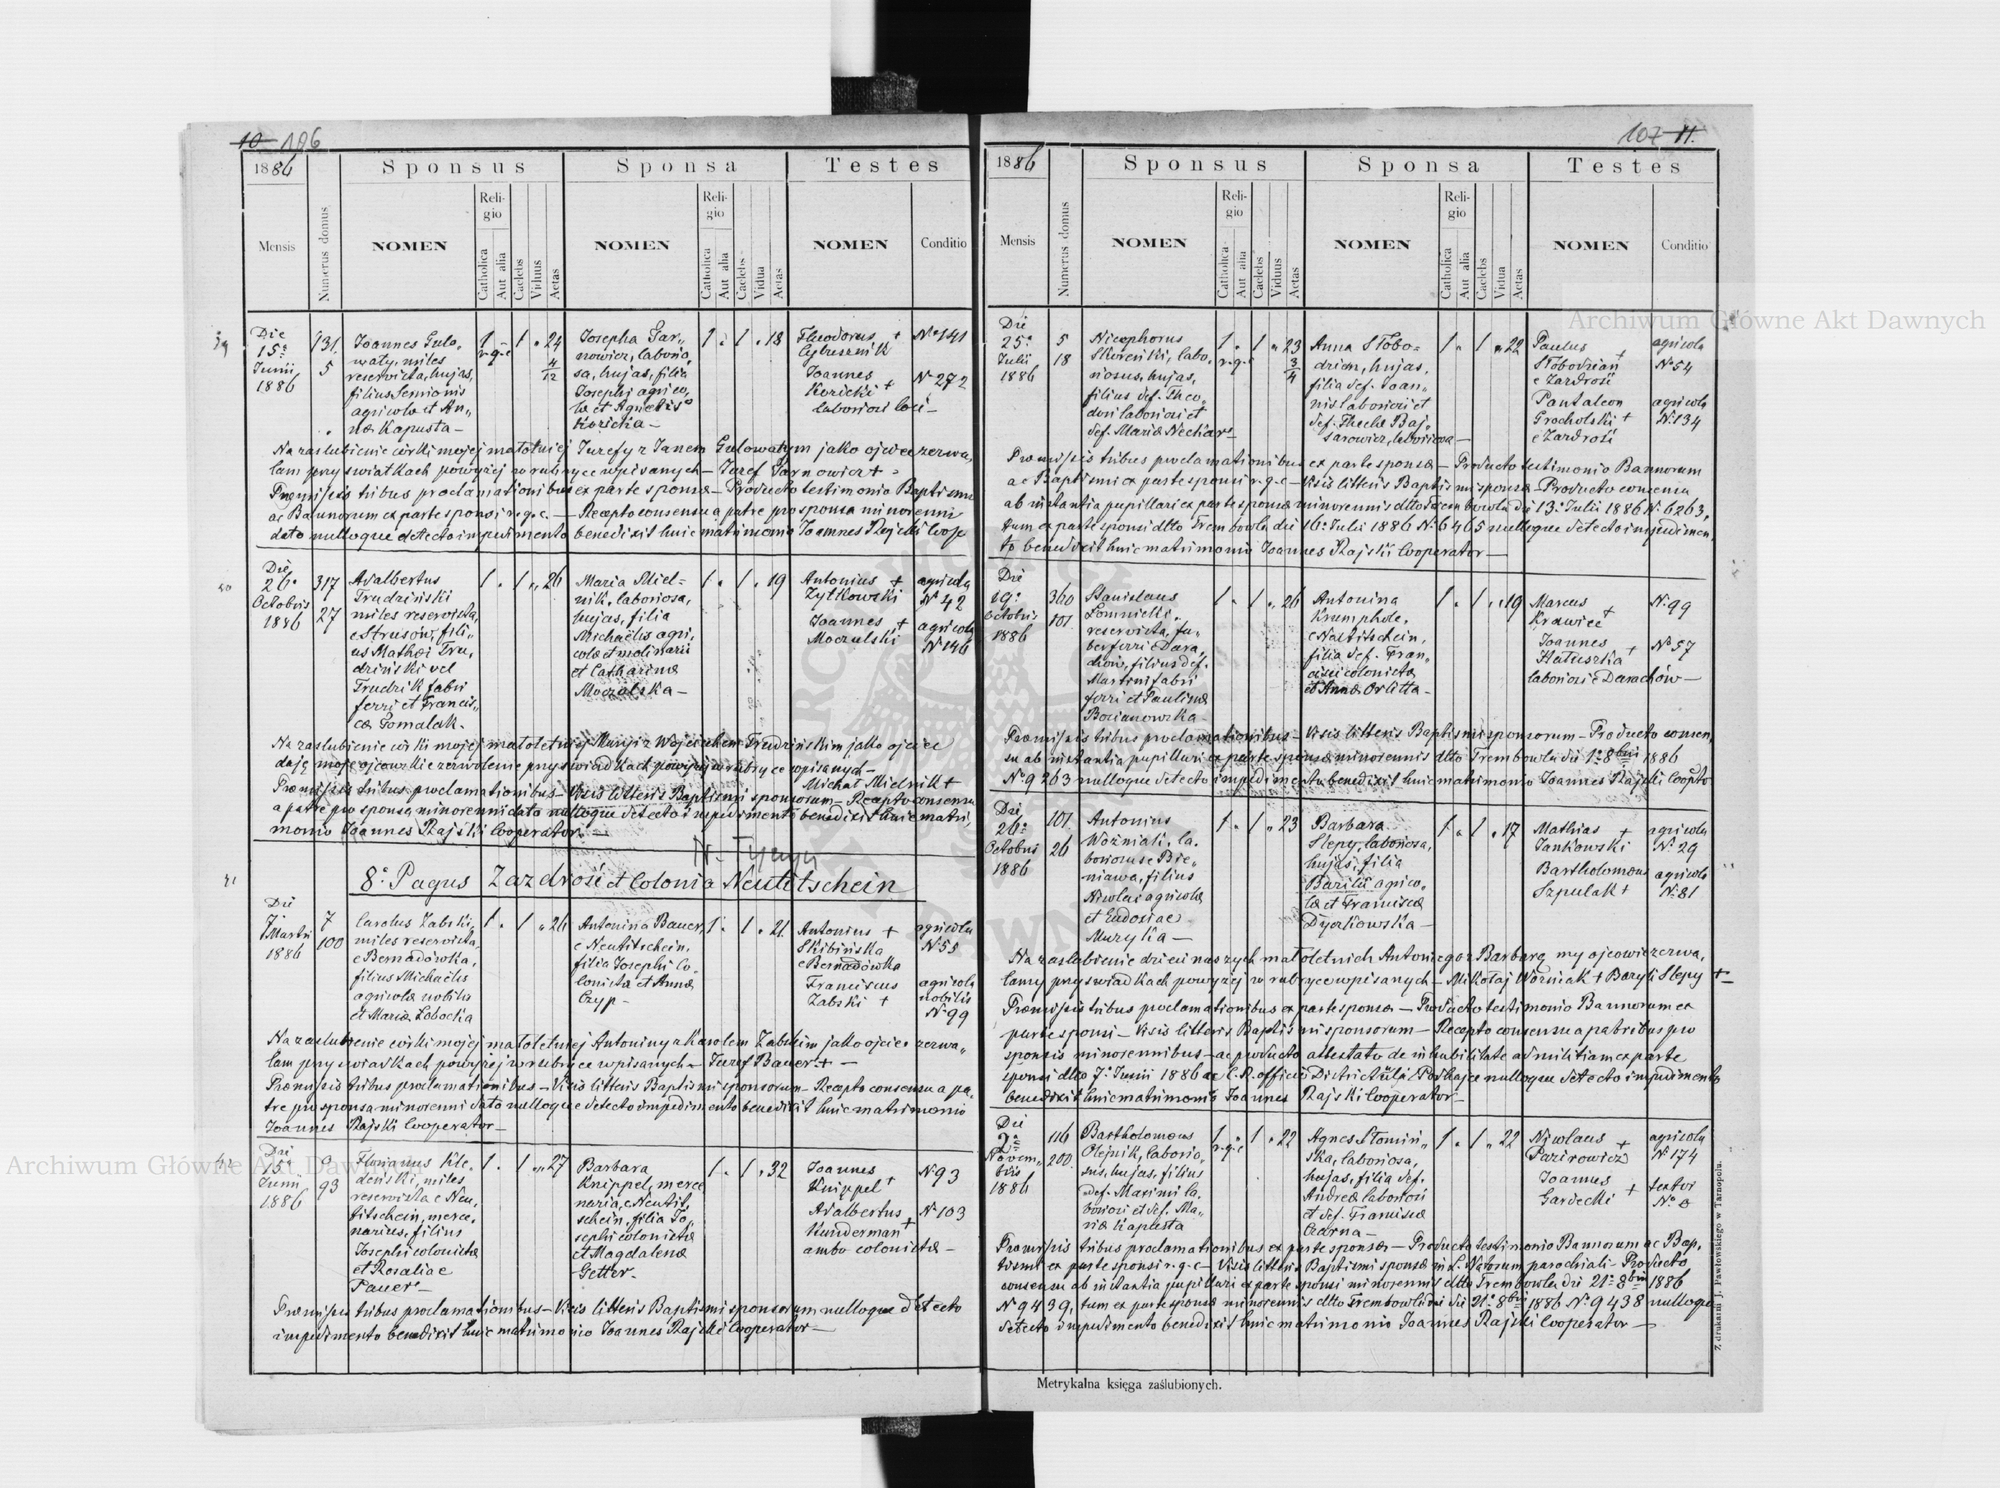 10 106
1886
Sponsus
Sponsa
Testes
Mensis
Numerus domus
NOMEN
Religio
Catholica
Aut alia
Caelebs
Viduus
Aetas
NOMEN
Religio
Catholica
Aut alia
Caelebs
Vidua
Aetas
NOMEN
Conditio
39
Die
15a
Junii
1886
131
5
Joannes Gulo-
waty, miles
reservista, hujas,
filius Semionis
agricolæ et An-
næ Kapusta —
1 r.g.c
1
24 4/12
Josepha Gar-
nowicz, laborio-
sa, hujas, filia
Josephi agrico-
læ et Agnetis
Koricka —
1
1
18
Theodorus +
Joannes
Koricki +
laboriosi loci —
No 141
No 272
Na zaslubienie córki mojej małoletniej Jurefy z Janem Gulowatym jako ojciec zezwa-
lam przy swiatkach powyżej w rubryce wpisanych — Juzef Garnowicz +
Præmissis tribus proclamationibus ex parte sponsæ — Producto testimonio Baptismi
ac Bannorum ex parte sponsi r.g.c. — Recepto consensu a patre pro sponsa minorenni
dato nulloque detecto impedimento benedixit huic matrimonio Joannes Rajski Coop
40
Die
26a
Octobris
1886
317
27
Adalbertus
Trudziński
miles reservista,
e Strusów, fili-
us Mathæi Tru-
dziński vel
Trudzik fabri
ferri et Francis-
cæ Gomalak.
1
1
26
Maria Miel-
nik, laboriosa,
hujas, filia
Michaëlis agri-
colæ et molinarii
et Catharinæ
Moczulska —
1
1
19
Antonius +
Zytkowski
Joannes +
Moczulski
agricola
No 42
agricola
No 146
Na zaslubienie córki mojej małoletniej Maryi z Wojciechem Trudzińskim jako ojciec
daję moje ojcowskie zezwolenie przy swiadkach powyżej w rubryce wpisanych —
Michał Mielnik +
Præmissis tribus proclamationibus — Visis litteris Baptismi sponsorum — Recepto consensu
a patre pro sponsa minorenni dato nulloque detecto impedimento benedixit huic matri-
monio Joannes Rajski Cooperator —
8o Pagus Zazdrość et Colonia Neutitschein
41
Die
7a Martii
1886
7
100
Carolus Zabski,
miles reservista,
e Bernadówka,
filius Michaëlis
agricolæ nobilis
et Mariæ Łobocka
1
1
26
Antonina Bauer,
e Neutitschein,
filia Josephi Co-
lonistæ et Annæ
Czyp —
1
1
21
Antonius +
Skibińska
e Bernadówka
Franciscus
Zabski +
agricola
No 55
agricola
nobilis
No 99
Na zaslubienie córki mojej małoletniej Antoniny z Karolem Zabskim jako ojciec zezwa-
lam przy swiadkach powyżej w rubryce wpisanych — Juzef Bauer + —
Præmissis tribus proclamationibus — Visis litteris Baptismi sponsorum — Recepto consensu a pa-
tre pro sponsa minorenni dato nulloque detecto impedimento benedixit huic matrimonio
Joannes Rajski Cooperator —
42
Die
15a
Junii
1886
9
93
Florianus Kle-
denski, miles
reservista e Neu-
titschein, merce-
narius, filius
Josephi colonistæ
et Rosaliæ
Pauer —
1
1
27
Barbara
Knippel, merce
naria, e Neutit-
schein, filia Jo-
sephi colonistæ
et Magdalenæ
Getter —
1
1
32
Joannes
Knippel +
Adalbertus
Kunderman +
ambo colonistæ —
No 93
No 103
Præmissis tribus proclamationibus — Visis litteris Baptismi sponsorum nulloque detecto
impedimento benedixit huic matrimonio Joannes Rajski Cooperator —
107 11.
1886
Sponsus
Sponsa
Testes
Mensis
Numerus domus
NOMEN
Religio
Catholica
Aut alia
Caelebs
Viduus
Aetas
NOMEN
Religio
Catholica
Aut alia
Caelebs
Vidua
Aetas
NOMEN
Conditio
Die
25a
Julii
1886
5
18
Nicephorus
Skoreński, labo-
riosus, hujas,
filius def. Theo-
dori laboriosi et
def. Mariæ Nechar —
1 r.g.c
1
23 3/4
Anna Słobo-
dzian, hujas,
filia def. Joan-
nis laboriosi et
def. Theclæ Baj-
sarowicz, laboriosa —
1
1
22
Paulus +
Słobodzian
e Zazdrość
Pantaleon
Grocholski +
e Zazdrość
agricola
No 54
agricola
No 134
Præmissis tribus proclamationibus ex parte sponsæ — Producto testimonio Bannorum
ac Baptismi ex parte sponsi r.g.c — Visis litteris Baptismi sponsæ — Producto consensu
ab instantia pupillari ex parte sponsæ minorennis dtto Trembowla die 13a Julii 1886 No 6263,
tum ex parte sponsi dtto Trembowla die 16a Julii 1886 No 6465 nulloque detecto impedimen-
to benedixit huic matrimonio Joannes Rajski Cooperator —
Die
19a
Octobris
1886
360
101
Stanislaus
Lomnicki,
reservista, fa-
ber ferri e Dara-
chów, filius def.
Martini fabri
ferri et Paulinæ
Bocianowska —
1
1
26
Antonina
Krumphole,
e Neutitschein,
filia def. Fran-
cisci colonistæ
et Annæ Orlitta —
1
1
19
Marcus +
Krawiec
Joannes +
Hatuszka
laboriosi e Darachów —
No 99
No 57
Præmissis tribus proclamationibus — Visis litteris Baptismi sponsorum — Producto consen-
su ab instantia pupillari ex parte sponsæ minorennis dtto Trembowla die 1a 8bris 1886
No 9263 nulloque detecto impedimento benedixit huic matrimonio Joannes Rajski Coopto
Die
26a
Octobris
1886
101
26
Antonius
Wozniak, la-
boriosus e Bie-
niawa, filius
Nicolai agricolæ
et Eudoxiae
Muzyka —
1
1
23
Barbara
Slepy, laboriosa,
hujas, filia
Basilii agrico-
læ et Franciscæ
Dyczkowska —
1
1
17
Mathias +
Jankowski
Bartholomeus
Szpulak +
agricola
No 29
agricola
No 81
Na zaslubienie dzieci naszych małoletnich Antoniego z Barbarą my ojcowie zezwa-
lamy przy swiadkach powyżej w rubryce wpisanych — Mikołaj Wozniak + Bazyli Slepy +
Præmissis tribus proclamationibus ex parte sponsæ — Producto testimonio Bannorum ex
parte sponsi — Visis litteris Baptismi sponsorum — Recepto consensu a patribus pro
sponsis minorennibus — ac producto attestato de inhabilitate ad militiam ex parte
sponsi dtto 7a Junii 1886 a C.R. officio Districtuali Podhajce nulloque detecto impedimento
benedixit huic matrimonio Joannes Rajski Cooperator —
Die
2a
Novem-
bris
1886
116
200
Bartholomeus
Olejnik, laborio-
sus, hujas, filius
def. Maximi la-
boriosi et def. Ma-
riæ Kapusta
1 r.g.c
1
22
Agnes Słomiń-
ska, laboriosa,
hujas, filia def.
Andreæ laboriosi
et def. Franciscæ
Czarna —
1
1
22
Nicolaus +
Pazirowicz
Joannes +
Gardecki
agricola
No 174
textor
Præmissis tribus proclamationibus ex parte sponsæ — Producto testimonio Bannorum ac Bap-
tismi ex parte sponsi r.g.c — Visis litteris Baptismi sponsæ in L. Natorum parochiali — Producto
consensu ab instantia pupillari ex parte sponsi minorennis dtto Trembowla die 21a 8bris 1886
No 9439, tum ex parte sponsæ minorennis dtto Trembowla die 21a 8bris 1886 No 9438 nulloque
detecto impedimento benedixit huic matrimonio Joannes Rajski Cooperator —
Metrykalna księga zaślubionych.
Z drukarni J. Pawłowskiego w Tarnopolu.
Archiwum Główne Akt Dawnych
Archiwum Główne Akt Dawnych